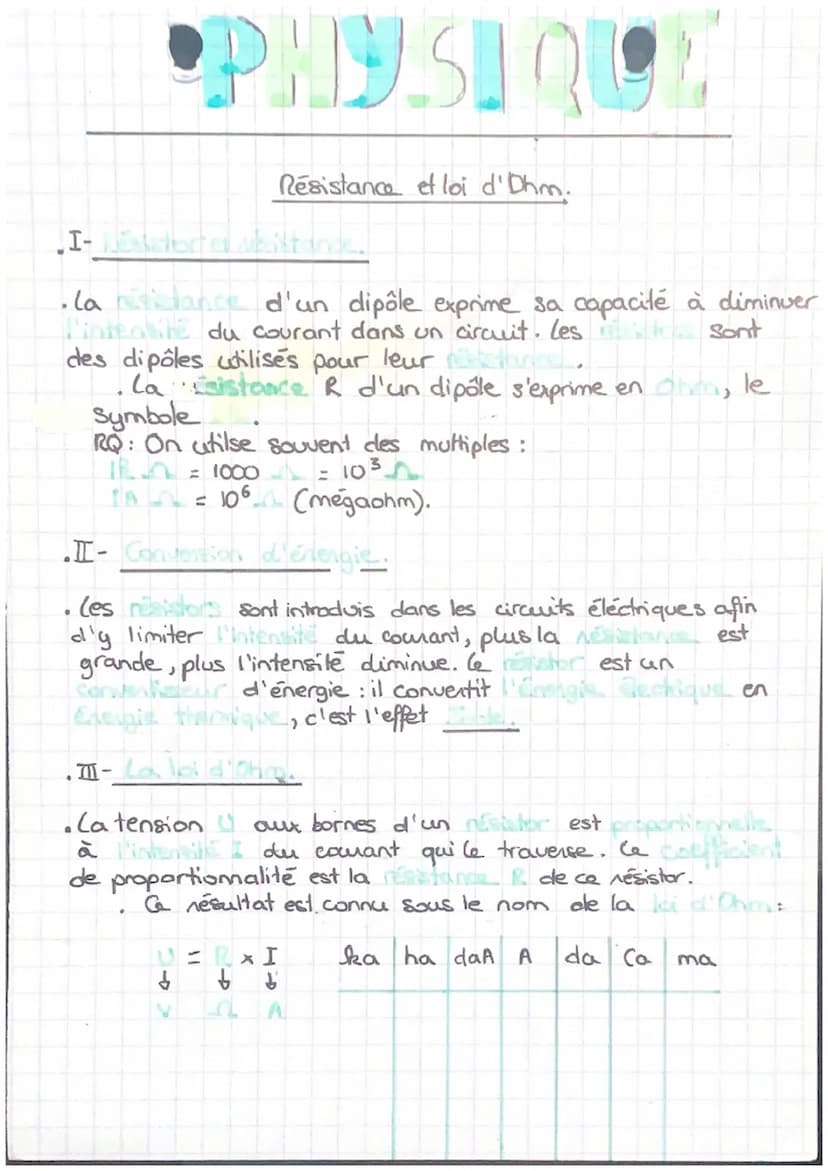 PHYSIQUE
Résistance et loi d'Ohm.
I- Résistor et résistance.
. La résistance d'un dipôle exprime sa capacité à diminuer
l'intensité du courant dans un circuit. Les résistors sont
des dipôles utilisés pour leur résistance.
. La résistance R d'un dipôle s'exprime en Ohm, le
symbole .
RQ: On utilse souvent des multiples :
1 Ω = 1000 Ω = 10³ Ω
1 Ω = 10⁶ Ω (mégaohm).
.II- Conversion d'énergie.
. Les résistors sont introduis dans les circuits éléctriques afin
d'y limiter l'intensité du courant, plus la résistance est
grande, plus l'intensité diminue. Le résistor est un
convertisseur d'énergie : il convertit l'énergie électrique en
Energie thermique, c'est l'effet Joule.
.III- La loi d'Ohm.
. La tension U aux bornes d'un résistor est proportionnelle
à l'intensité I du courant qui le traverse. Le coefficient
de proportionnalité est la résistance R de ce résistor.
. Ce résultat est connu sous le nom de la loi d'Ohm:
U = R x I ka ha daA A da Ca ma
↓ ↓ ↓
V Ω A